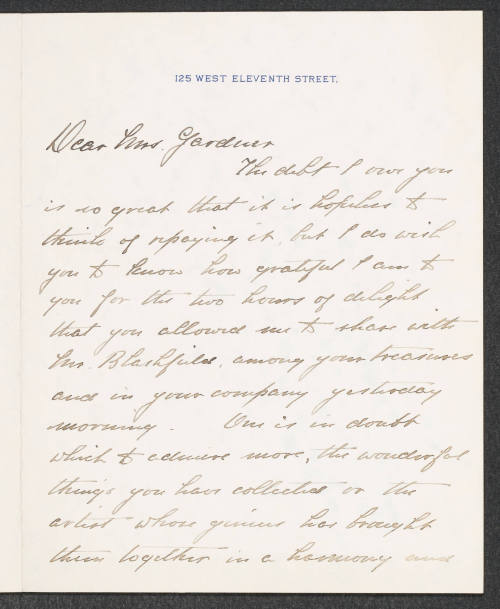 125 WEST ELEVENTH STREET.
Dear Mrs. Gardner
The debt I owe you
is so great that it is hopeless to
think of repaying it, but I do wish
you to know how grateful I am to
you for the two hours of delight
that you allowed me to share with
Mr. Blashfield, among your treasures
and in your company yesterday
morning. One is in doubt
which to admire more, the wonderful
things you have collected or the
artist whose genius has brought
them together in a harmony and